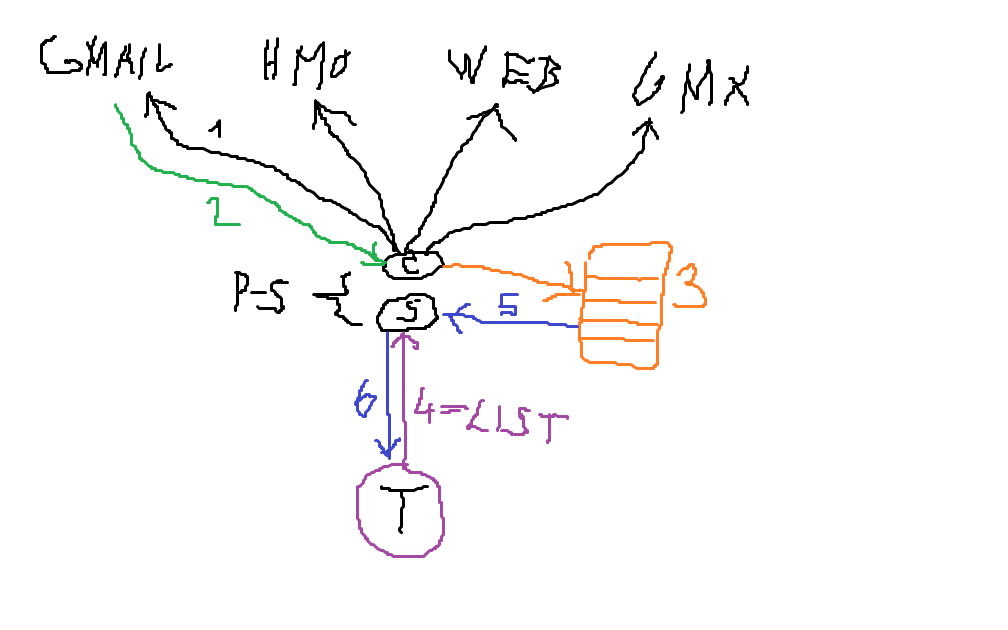 GMAIL HMO WEB GMX
1
2
C
3
P-S
S
5
6
4=LIST
T